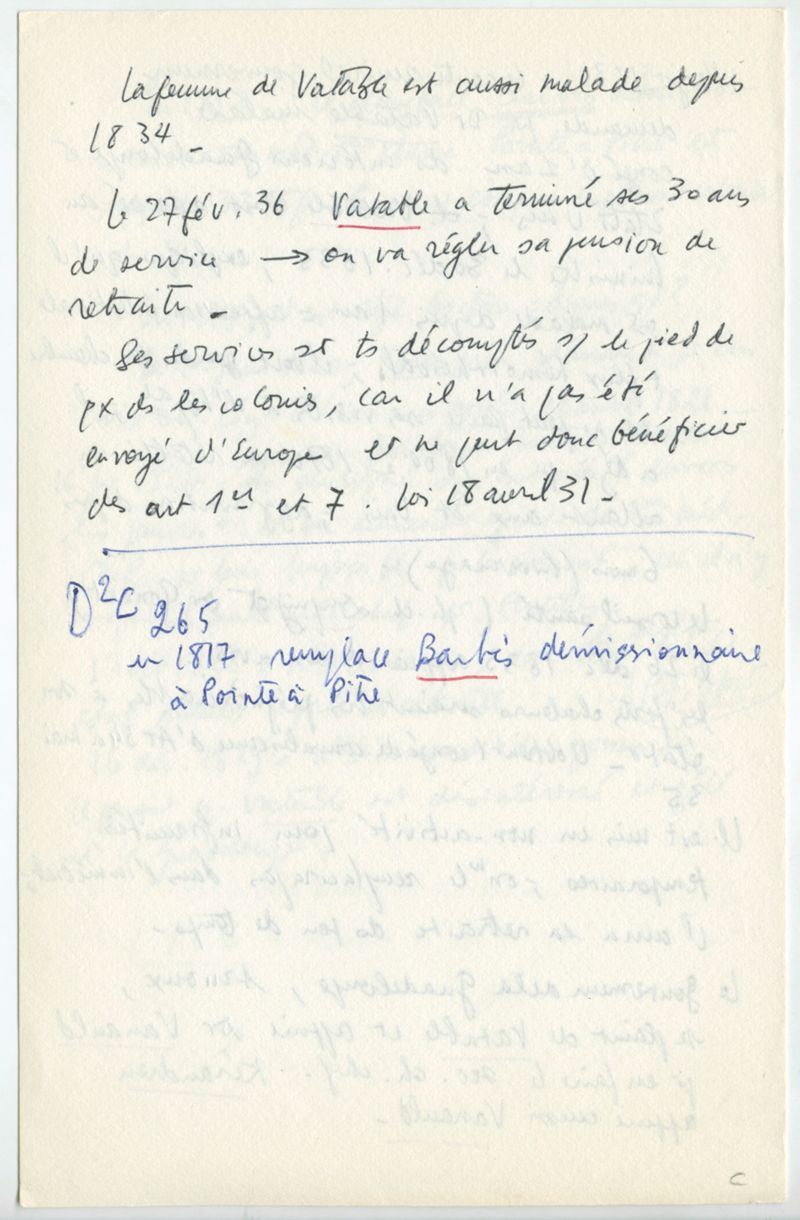 La femme de Vatable est aussi malade depuis
1834_
Le 27 fév. 36 Vatable a terminé ses 30 ans
de service → on va régler sa pension de
retraite_
Ses services st ts décomptés s/ le pied de
px ds les colonies, car il n'a pas été
envoyé d'Europe et ne peut donc bénéficier
des art 1er et 7. loi 18 avril 31_
D²C 265
en 1817 remplace Barbès démissionnaire
à Pointe à Pitre
C